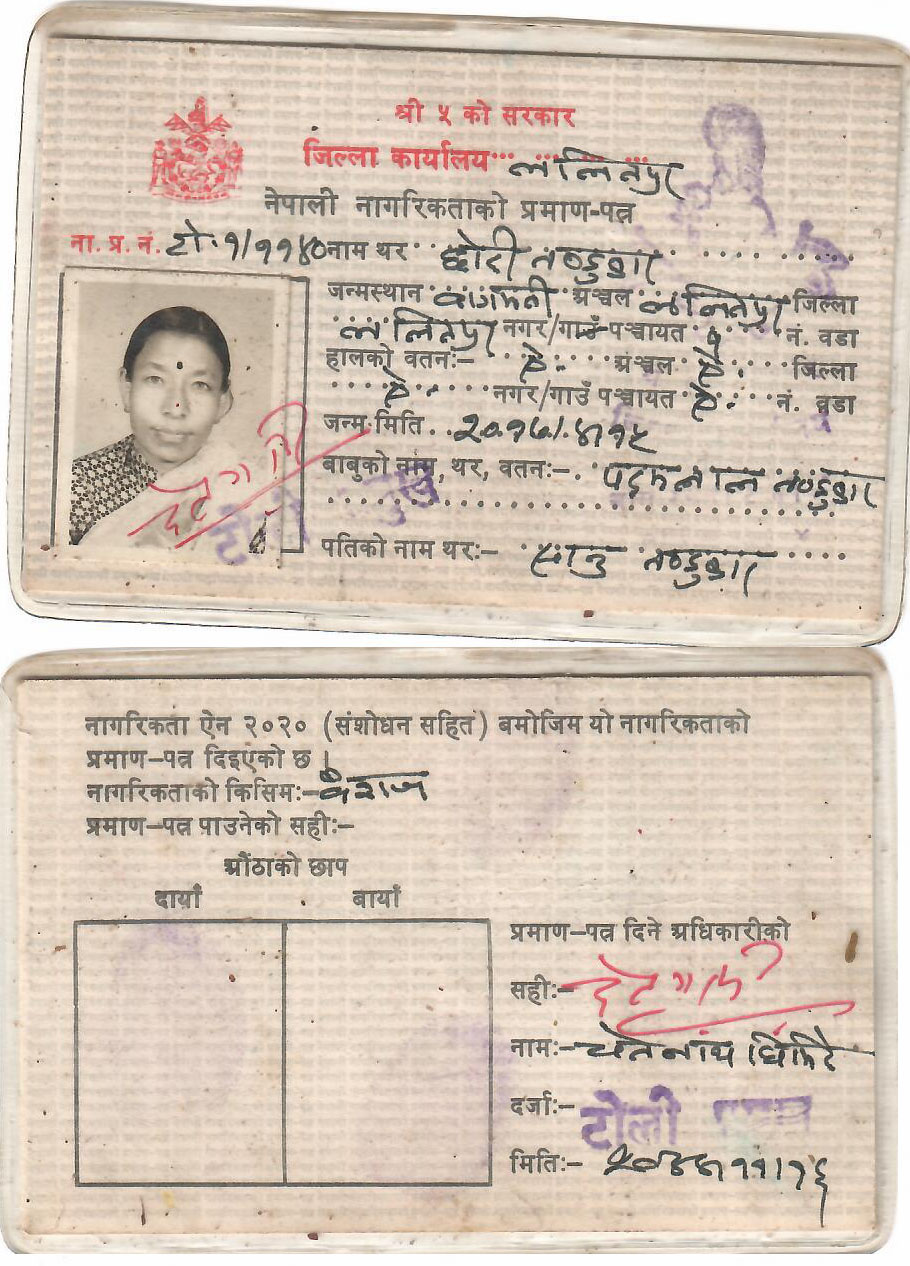 श्री ५ को सरकार
जिल्ला कार्यालय ललितपुर
नेपाली नागरिकताको प्रमाण-पत्र
ना. प्र. नं. टो.१/११४० नाम थर छोरी तण्डुकार
जन्मस्थान वागमती अञ्चल ललितपुर जिल्ला
ललितपुर नगर/गाउँ पञ्चायत नं. वडा
हालको वतनः- ऐ. अञ्चल ऐ. जिल्ला
ऐ. नगर/गाउँ पञ्चायत ऐ. नं. वडा
जन्म मिति
बाबुको नाम, थर, वतनः- पदमलाल तण्डुकार
पतिको नाम थरः- तण्डुकार
नागरिकता ऐन २०२० (संशोधन सहित) बमोजिम यो नागरिकताको
प्रमाण-पत्र दिइएको छ ।
नागरिकताको किसिमः- वंशज
प्रमाण-पत्र पाउनेको सहीः-
औंठाको छाप
दायाँ बायाँ
प्रमाण-पत्र दिने अधिकारीको
सहीः-
नामः- घिमिरे
दर्जाः- टोली
मितिः-